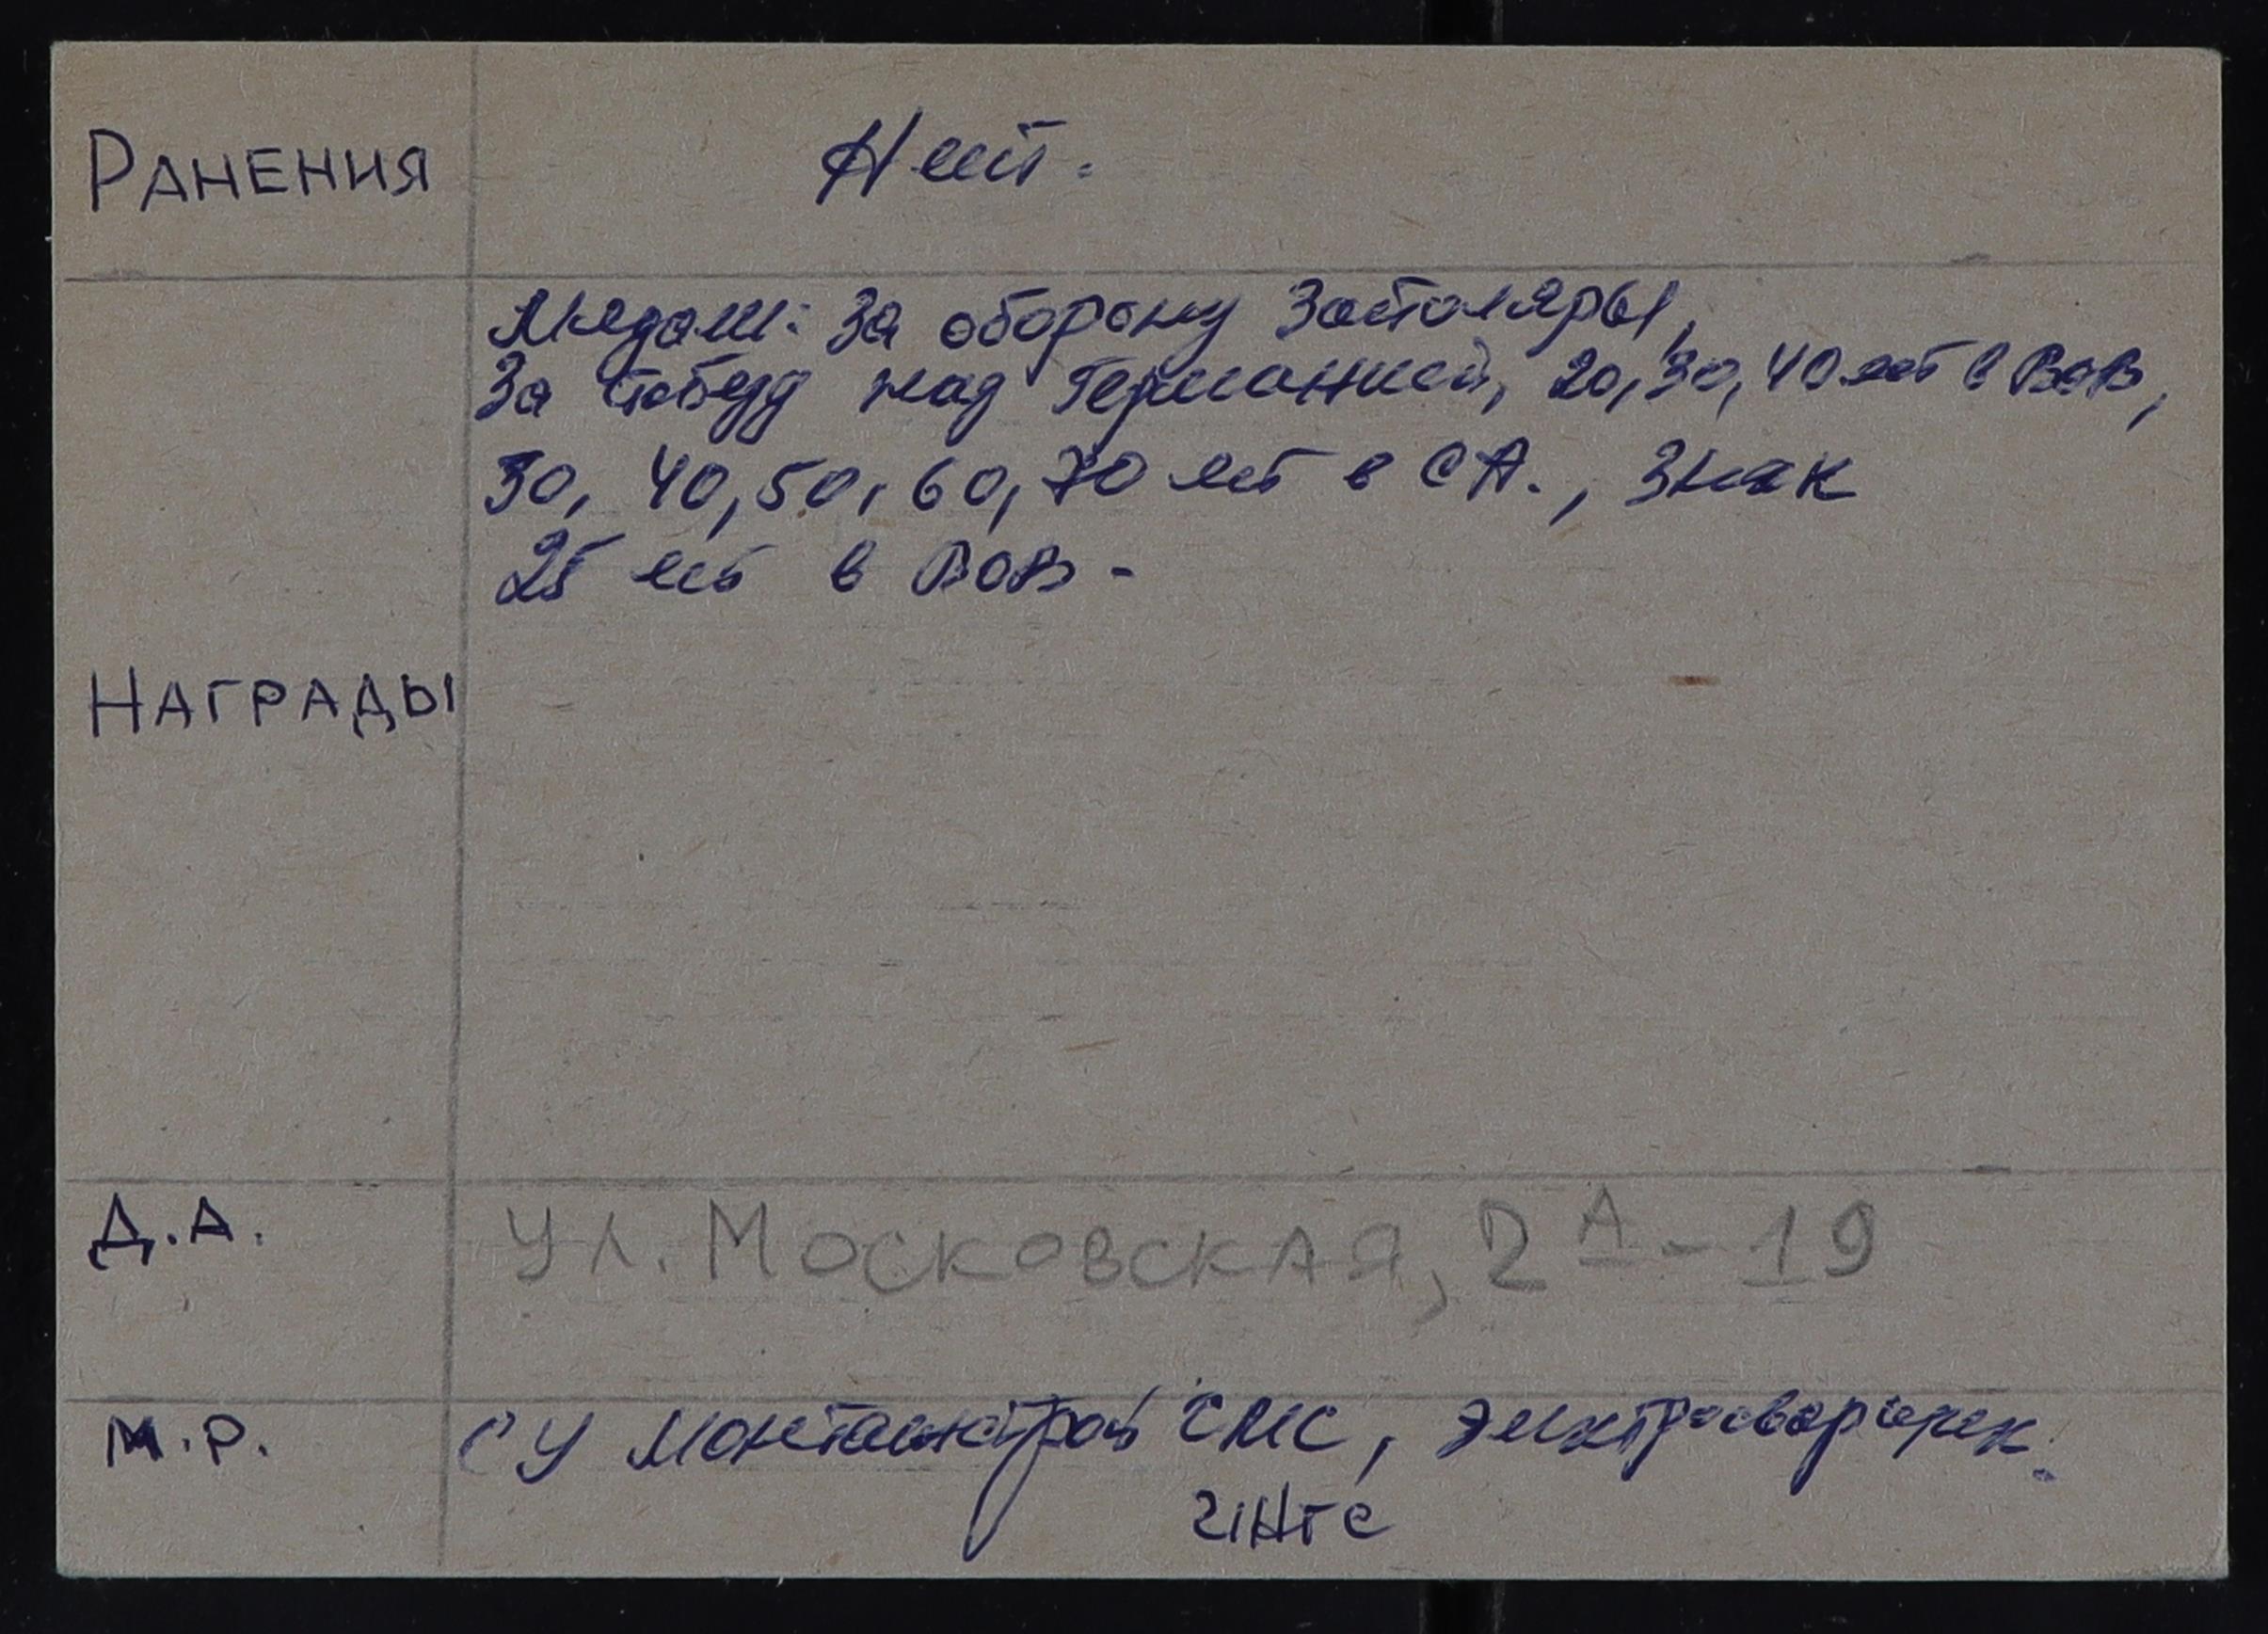 Ранения Нет.
Медали: За оборону Заполярья,
За победу над Германией, 20, 30, 40 лет в ВОВ,
30, 40, 50, 60, 70 лет в СА., Знак
25 лет в ВОВ.
Награды
Д.А. ул. Московская, 2А-19
М.Р. СУ Монтажстрой СМС, электросварщик.